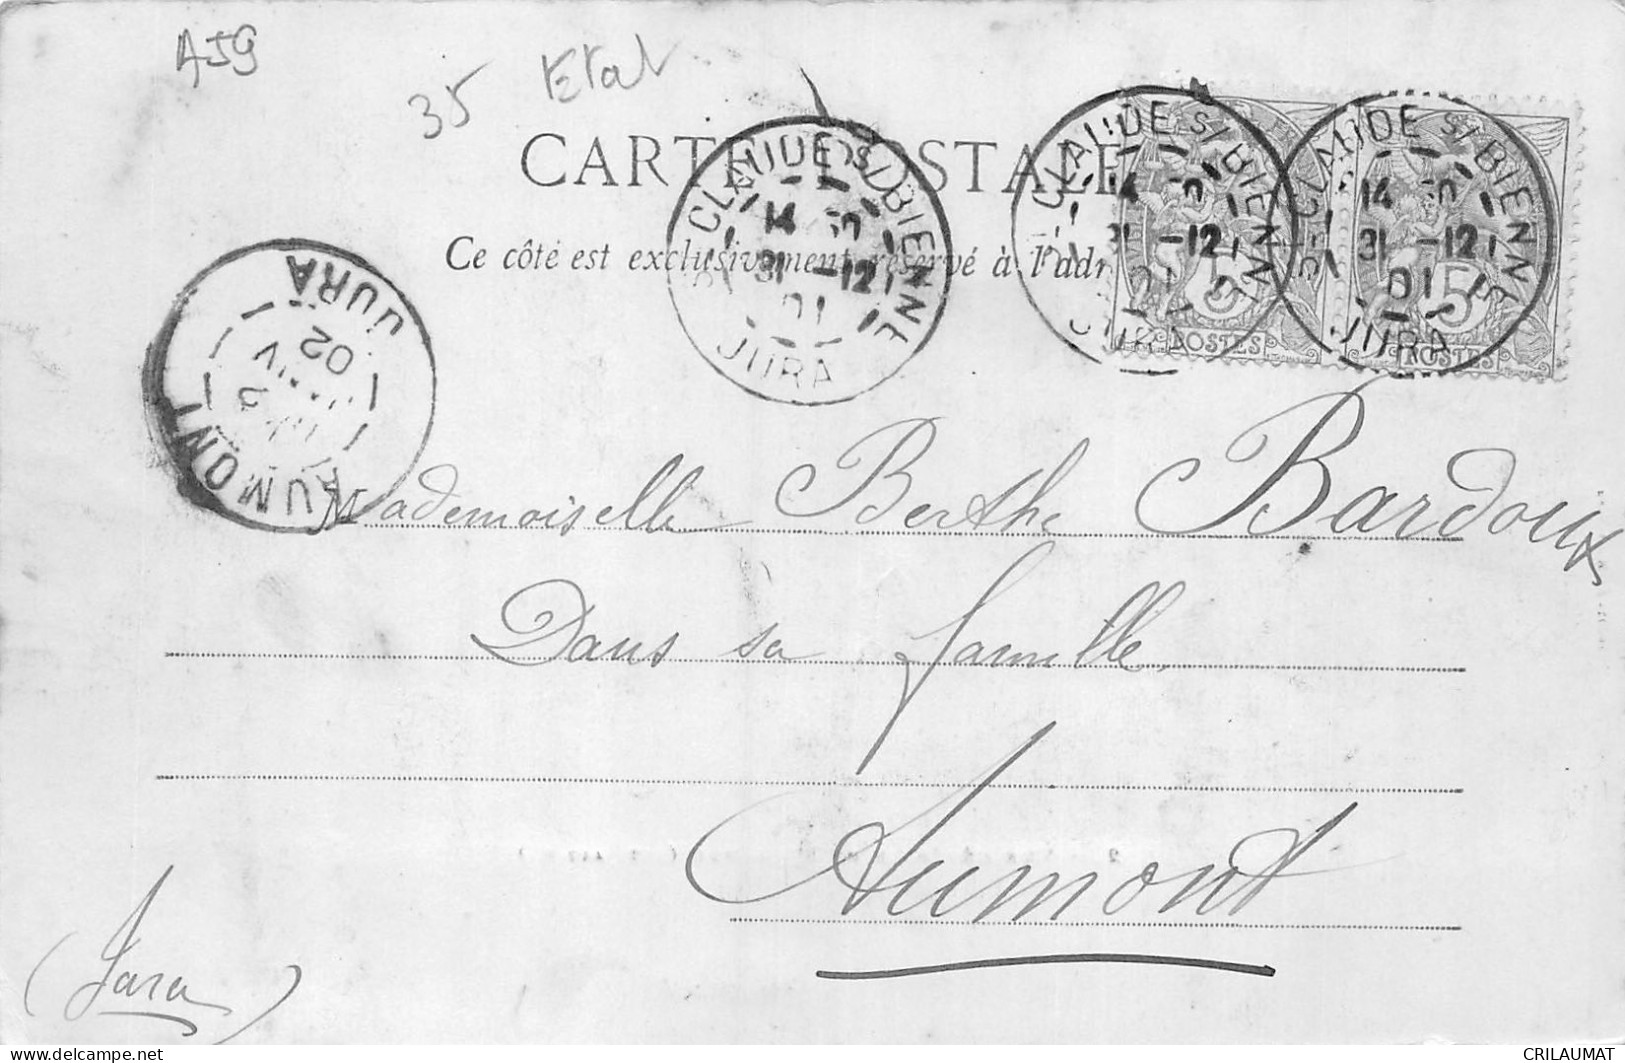 A59
35 Etat
CARTE POSTALE
Ce côté est exclusivement réservé à l'adr
CLAUDE S/ BIENNE
14
31 -12
01
JURA
CLAUDE S/ BIENNE
14
31 -12
01
JURA
ST CLAUDE S/ BIENNE
14
31 -12
01
JURA
5
POSTES
5
POSTES
AUMONT
JURA
02
Mademoiselle Berthe Bardoux
Dans sa famille
Aumont
(Jura)
delcampe.net
CRILAUMAT